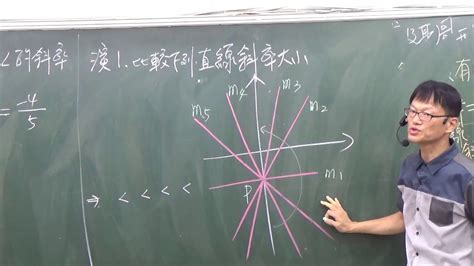 的斜率
= -4/5
演1.比較下列直線斜率大小
m5 m4 m3 m2
m1
P
⇒ < < < <
有